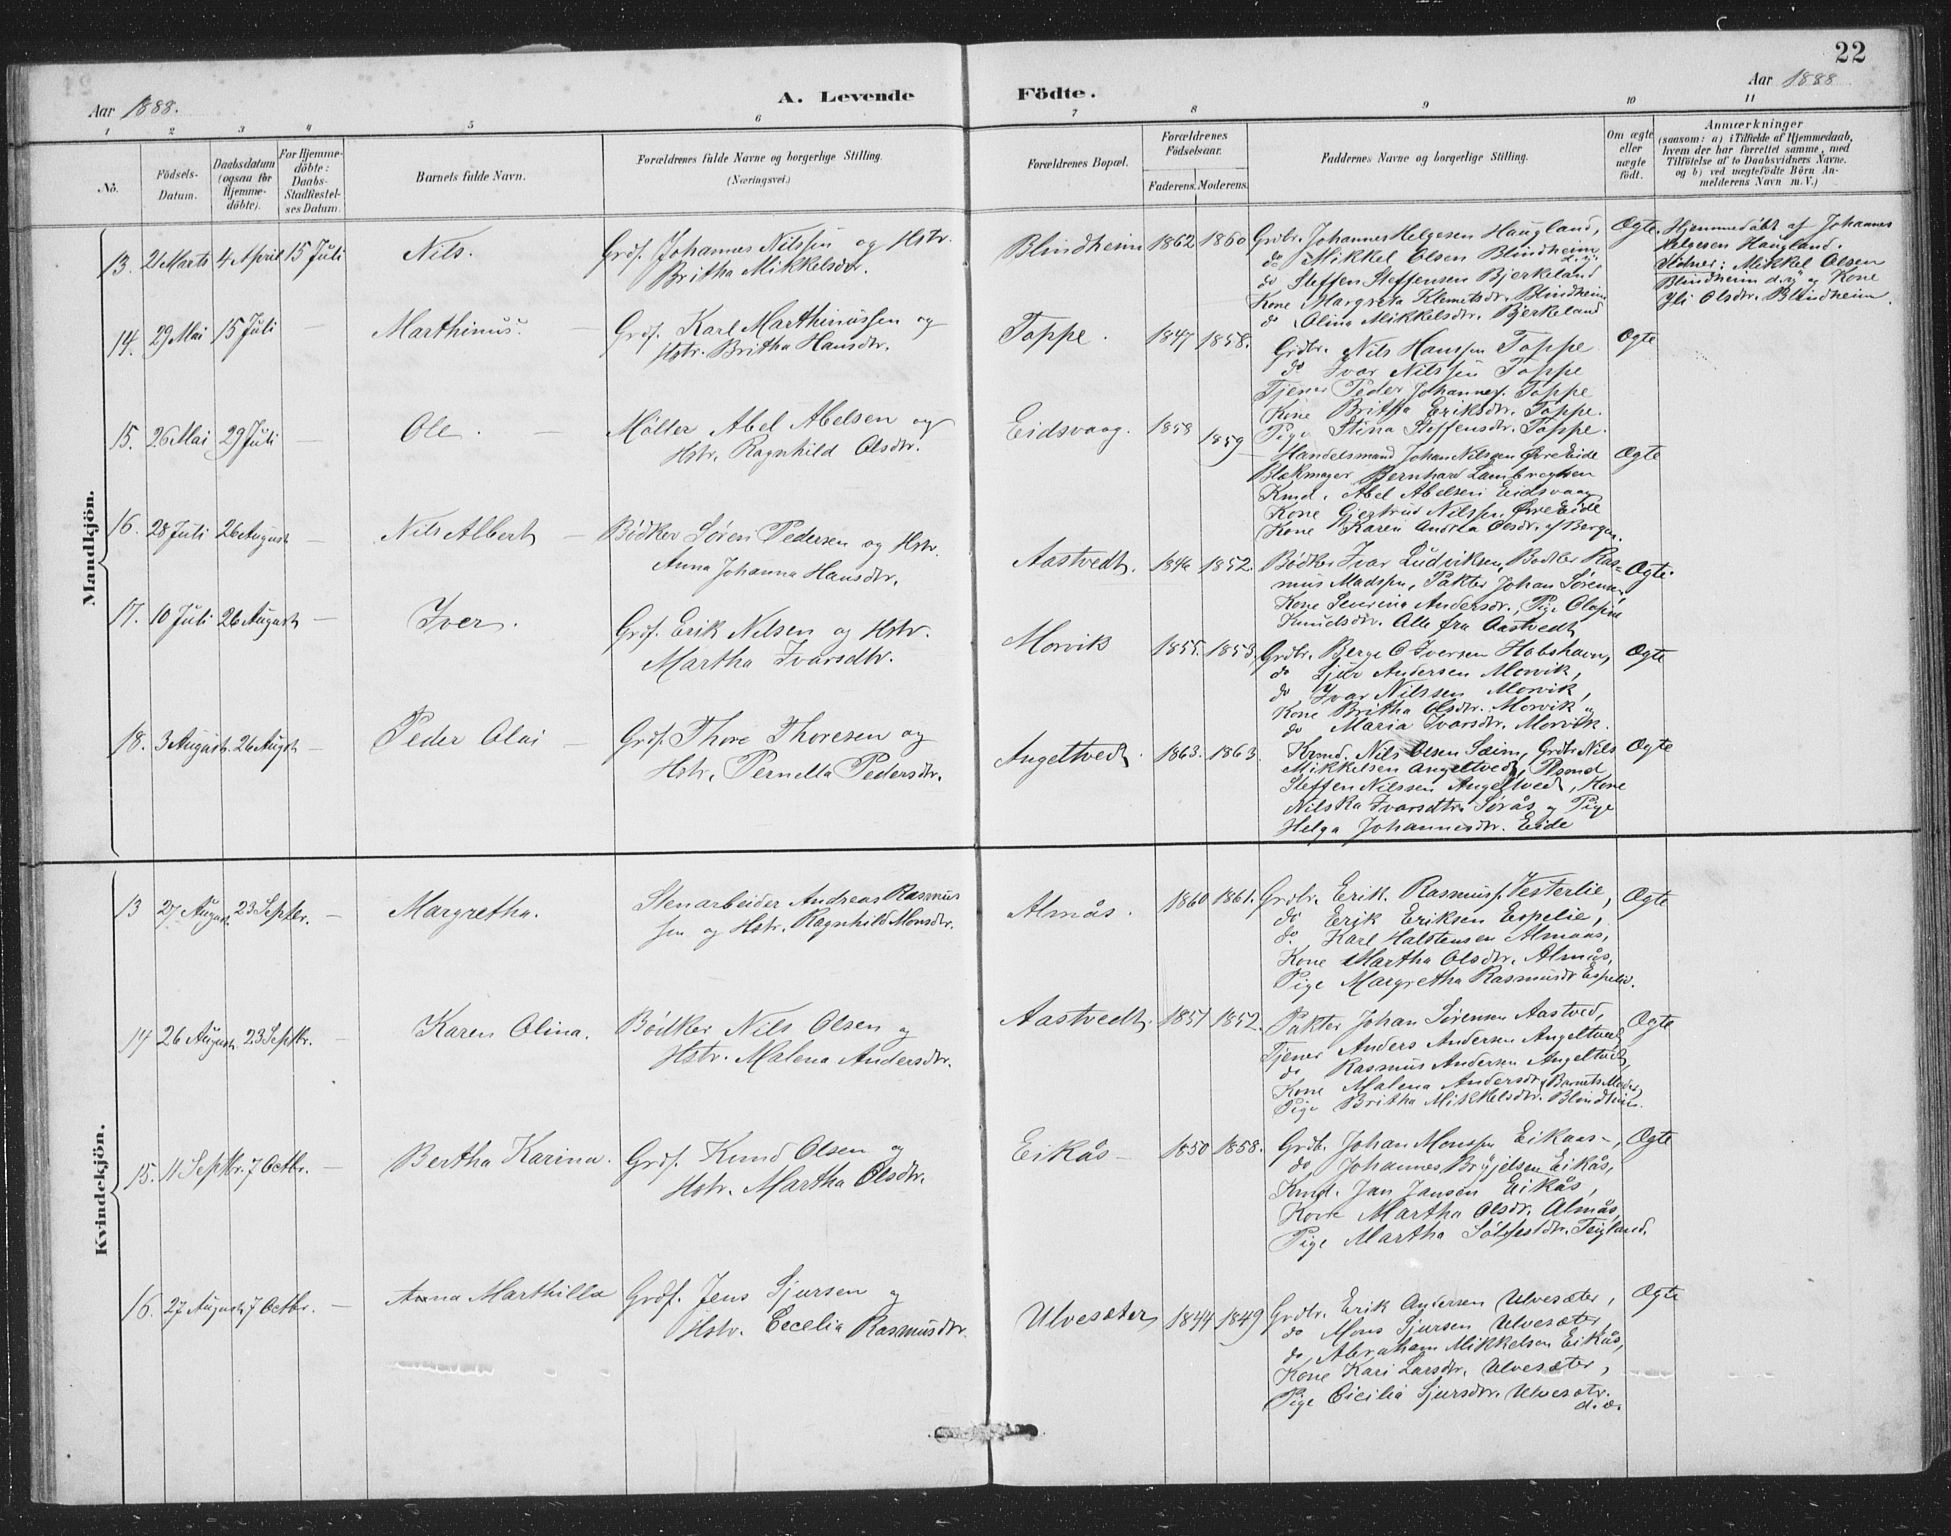 22
Aar 1888.
A. Levende Födte.
Aar 1888
1 2 3 4 5 6 7 8 9 10 11
No.
Födsels-
Datum.
Daabsdatum
(ogsaa for
Hjemme-
döbte).
For Hjemme-
döbte:
Daabs-
Stadfæstel-
ses Datum.
Barnets fulde Navn.
Forældrenes fulde Navne og borgerlige Stilling.
(Næringsvei.)
Forældrenes Bopæl.
Forældrenes
Födselsaar.
Faderens. Moderens.
Faddernes Navne og borgerlige Stilling.
Om ægte
eller
uægte
födt.
Anmærkninger
(saasom: a) i Tilfælde af Hjemmedaab,
hvem der har forrettet samme, med
Tilföielse af to Daabsvidners Navne.
og b) ved uægtefödte Börn An-
melderens Navn m. V.)
Mandkjön.
13. 21 Marts 4 April 15 Juli
Nils.
Grdf. Johannes Nilssen og Hstr.
Britha Mikkelsdtr.
Blindheim 1862 1860
Grdbr. Johannes Helgesen Haugland,
do Mikkel Olsen Blindheim
do Steffen Steffensen Bjerkeland
Kone Margreta Klemetsdr. Blindheim
do Olina Mikkelsdtr. Bjerkeland
Ægte.
Hjemmedöbt af Johannes
Helgesen Haugland.
Mikkel Olsen
Blindheim d.y og Kone
Olsdtr. Blindheim.
14. 29 Mai 15 Juli —
Marthinus.
Grdf. Karl Marthinussen og
Hstr. Britha Hansdtr.
Toppe. 1847 1858.
Grdbr. Nils Hanssen Toppe
do Ivar Nilssen Toppe
Tjener Peder Johanness. Toppe
Kone Britha Eriksdtr. Toppe.
Pige Stina Steffensdtr. Toppe.
Ægte
15. 26 Mai 29 Juli —
Ole. —
Møller Abel Abelsen og
Hstr. Ragnhild Olsdtr.
Eidsvaag. 1858 1859
Handelsmand Johan Nilssen Øvre Eide
Blekmager Bernhard Lambregtsen
Kmd. Abel Abelsen Eidsvaag
Kone Gjertrud Nilssen, Øvre Eide
Kone Karen Andrea Olsdr. af Bergen.
Ægte
16. 28 Juli 26 August —
Nils Albert —
Bødker Søren Pedersen og Hstr.
Anna Johanna Hansdtr.
Aastvedt. 1846 1852.
Bødker Ivar Ludviksen, Bødker Ras-
mus Madssen, Pakter Johan Sørensen,
Kone Severina Andersdr., Pige Olefine
Knudsdtr. Alle fra Aastvedt
Ægte.
17. 10 Juli 26 August —
Iver.
Grdf. Erik Nilsen og Hstr.
Martha Ivarsdtr.
Morvik 1855. 1853.
Grdbr. Berge O Iversen Hobshavn,
do Sjur Andersen Morvik,
do Ivar Nilssen Morvik,
Kone Britha Olsdtr. Morvik og
do Maria Ivarsdtr. Morvik.
Ægte
18. 3 August 26 Augst —
Peder Olai —
Grdf. Thore Thoresen og
Hstr. Pernella Pedersdtr.
Angeltvedt 1863. 1863
Kmd. Nils Olsen Sæim, Grdbr. Nils
Mikkelsen Angeltvedt,
Steffen Nilssen Angeltvedt, Kone
Nilska Ivarsdtr. Sørås og Pige
Helga Johannesdtr. Eide
Ægte
Kvindekjön.
13 27 August 23 Septbr. —
Margretha.
Stenarbeider Andreas Rasmus
sen og Hstr. Ragnhild Monsdtr.
Almås. 1860 1861.
Grdbr. Erik Rasmuss. Vesterlie,
do Erik Eriksen Espelie,
do. Karl Halstensen Almaas,
Kone Martha Olsdtr. Almås,
Pige Margretha Rasmusdr Espelie.
Ægte
14 26 August 23 Septbr. —
Karen Olina.
Bødker Nils Olsen og
Hstr. Malena Andersdtr.
Aastvedt. 1851 1852.
Pakter Johan Sørensen Aastved,
Tjener Anders Andersen Angeltvedt
do Rasmus Andersen Angeltvedt,
Kone Malena Andersdr (Barnets Moder)
Pige Britha Mikkelsdtr. Blindheim.
Ægte
15. 11 Septbr. 7 Octbr. —
Bertha Karina.
Grdf. Knud Olsen og
Hstr. Martha Olsdtr.
Eikås — 1850 1858.
Grdb. Johan Monssen Eikaas —,
do Johannes Brygjelsen Eikås,
Kmd. Jan Jansen Eikås,
Kone Martha Olsdr. Almås,
Pige Martha Sølfestdtr. Teigland.
Ægte
16. 27 August 7 Octbr. —
Anna Marthilla
Grdf. Jens Sjursen og
Hstr. Cecelia Rasmusdtr.
Ulvesæter 1844 1849
Grdbr. Erik Andersen Ulvesæter,
do Mons Sjursen Ulvesæter,
do Abraham Mikkelsen Eikås,
Kone Kari Larsdtr. Ulvesæter,
Pige Cicilia Sjursdtr. Ulvesætr.
d.æ.
Ægte